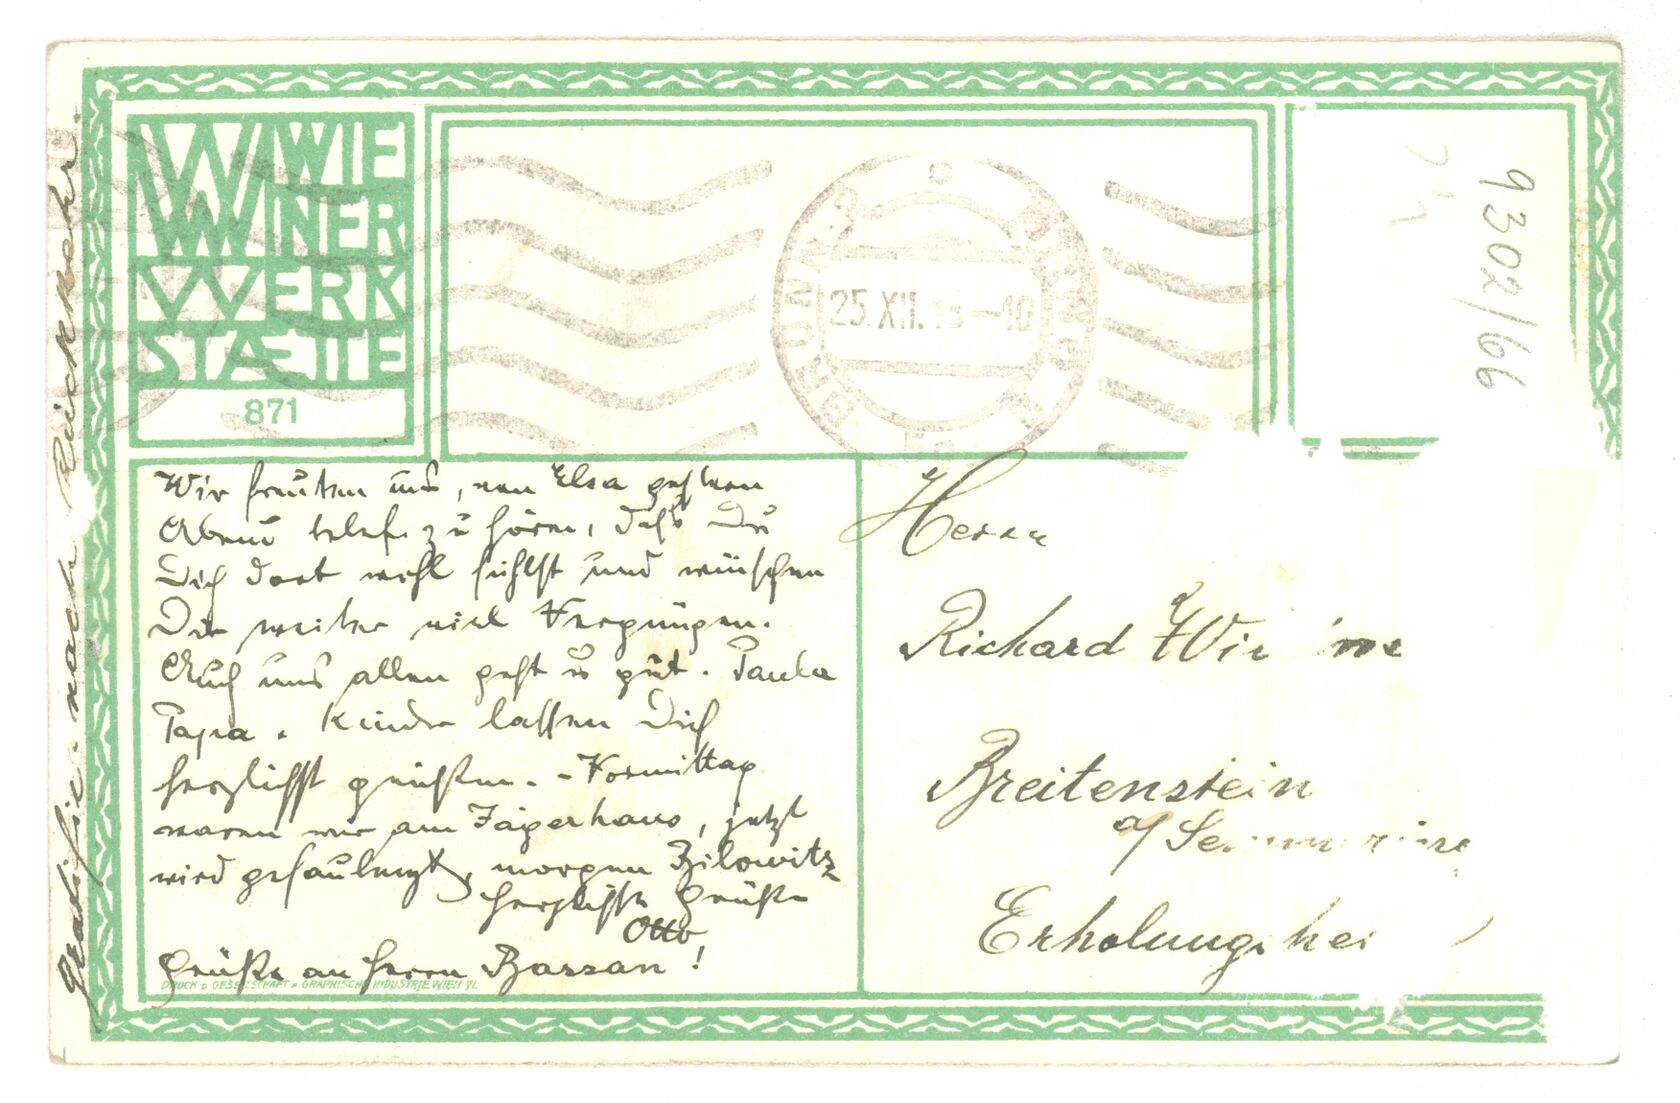 WIE
NER
WERK
STÆTTE
871
BRÜNN 2
BRNO 2
25.XII.13 –10
9302/66
Wir freuten uns, von Elsa gestern
Abend telef. zu hören, daß Du
Dich dort wohl fühlst und wünschen
Dir weiter viel Vergnügen.
Auch uns allen geht es gut. Paula
Papa. Kinder lassen Dich
herzlichst grüßen. – Vormittag
waren wir am Jägerhaus, jetzt
wird gefaulenzt, morgen Bilowitz
herzlichste Grüße
Otto
Grüße an Herrn Bassan!
DRUCK u. GESELLSCHAFT f. GRAPHISCHE INDUSTRIE WIEN VI.
nach Rückkehr.
Herrn
Richard
Breitenstein
a/
Erholungshei